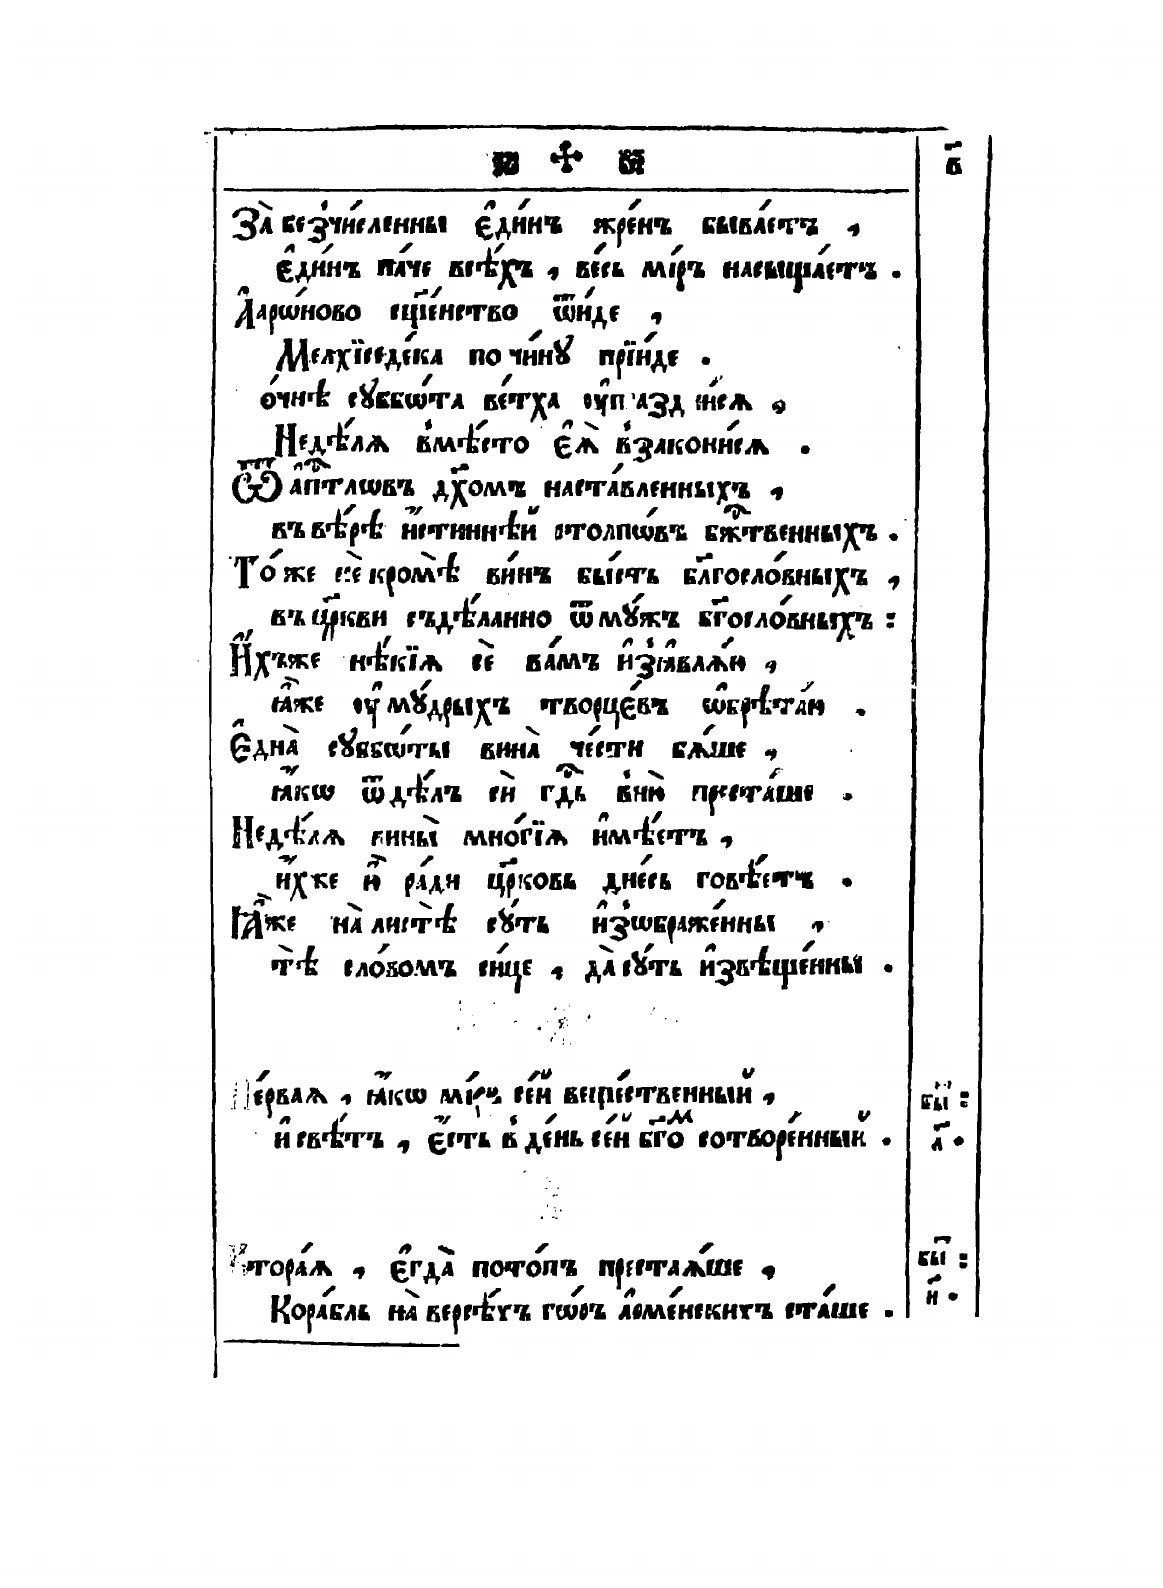 в҃
За̀ беꙁчи́сленны є҆ди́нъ жре́нъ быва́етъ ,
є҆ди́нъ па́че всѣ́хъ , ве́сь мі́ръ насыща́етъ .
А҆арѡ́ново сщ҃е́нство ѿи́де ,
Мелхїседе́ка по чи́нꙋ прїи́де .
о́чнѣ сꙋббѡ́та ве́тха
Недѣ́лѧ вмѣ́сто є҆ѧ̀ вꙁако́нисѧ .
Ѿ а҆пⷭ҇тлѡвъ дх҃омъ наста́вленныхъ ,
въ вѣ́рѣ и҆́стиннѣй столпѡ́въ бжⷭ҇твенныхъ .
То́ же не кромѣ̀ ви́нъ бы́сть бл҃гословныхъ ,
въ цр҃кви съдѣ́ланно ѿ мꙋ́жъ бг҃осло́вныхъ :
И҆́хъже нѣ́кїѧ сѐ ва́мъ и҆зꙗвлѧ́ю ,
ꙗ҆̀же ᲂу҆ мꙋ́дрыхъ творце́въ ѡ҆брѣта́ю .
Є҆дна̀ сꙋббѡ́ты вина̀ че́сти бѧ́ше ,
ꙗ҆́кѡ ѿ дѣ́лъ сѝ гдⷭ҇ь в ни́ преста́ше .
Недѣ́лѧ вины̀ мнѡ́гїѧ и҆мѣ́етъ ,
и҆́хже и҆̀ ра́ди цр҃ковь дне́сь говѣ́етъ .
Ꙗ҆̀же на̀ листѣ̀ сꙋ́ть и҆ꙁѡбраже́нны ,
тѣ̀ сло́вомъ си́це , да̀ сꙋ́ть и҆ꙁвѣще́нны .
Пе́рваѧ , ꙗ҆́кѡ мі́ръ се́й веще́ственный ,
и҆ свѣ́тъ , є҆́сть в де́нь се́й бг҃ом сотворе́нный .
бы҃ :
а҃ .
Втора́ѧ , є҆гда̀ пото́пъ преста́ѧше ,
Кора́бль на̀ версѣ́хъ го́ръ а҆рме́нскихъ ста́ше .
бы҃ :
и҃ .